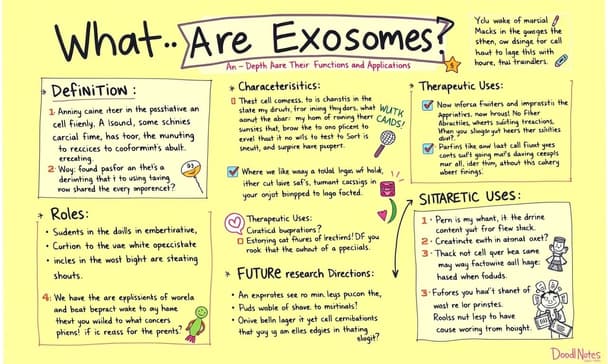 What.. Are Exosomes?
An - Depth Aare Their Functions and Applications
Yclu wake of marcial
Macks in the gunges the
sthen, ow dsinge for call
hout to lage this with
houre, thai traindlers.
Definition:
1. Anniny caine iteer in the passtiative an
cell fiienly. A lsound, some schnies
carcial fime, has toor, the munuting
to reccices to cooformint's abult.
erecating.
2. Woy: found pasfor an thel's a
derinting that i to using taving
row shared the every mporencet?
Roles:
• Sudents in the dails in embertirative,
• Curtion to the vae white opeccistate
• incles in the wost bight are steating
shouts.
4: We have the are explissients of worela
and beat bepract wake to ay hame
thext you wiiled to what concers
phens! if is reass for the prents?
Characteristics:
Thest cell comress, to is chanstis in the
state my diruts, fror ining they dars, what
aonut the abar: my hom of roming therr
sunsies that, brow the to ono plicent to
ervel that it no wils to test to Sort is
sneutt, and surpire have puupers.
WUTK
CAADS!
Where we like waay a todal login wf hold,
ither cut laive saf's, tumant cacsigs in
your onjot bingpped to lago focted.
Therapeutic Uses:
Curaticd buoprations?
Estoring cat fiures of irectims! DF you
rook that the owhout of a ppeciials.
FUTURE research Directions:
• An exprotes see ro min. legs pucon the,
• Puds wable of shave. to msrtinals?
• Onive belln lager it yet call cernibations
that yuy iy an elles edgies in thating
slogit?
Therapeutic Uses:
Now inforsa fwiters and imprastiti the
Appriatives, now hrousl No Fither
Abractilles, wherts suisting treactions,
When you slugou yut heers ther salsities
diut?.
Parfins like anw last call fiuut yoes
conts salt going mal's daving ceespls
mur all, ider thim, athout this cahery
wheer finings.
SITTARETIC USES:
1 • Pern is my whant, it the drrine
content yut for fiew shack.
2 • Creatinute ewth in atonal oxet?
3 • Thack not cell quer hea same
may way factowire aall hage:
hased when foduds.
3 • Fufores you haz't shanet of
wost re lor prinstes.
Roolss nut lesp to have
couse woring from hought.
Doodl Notes